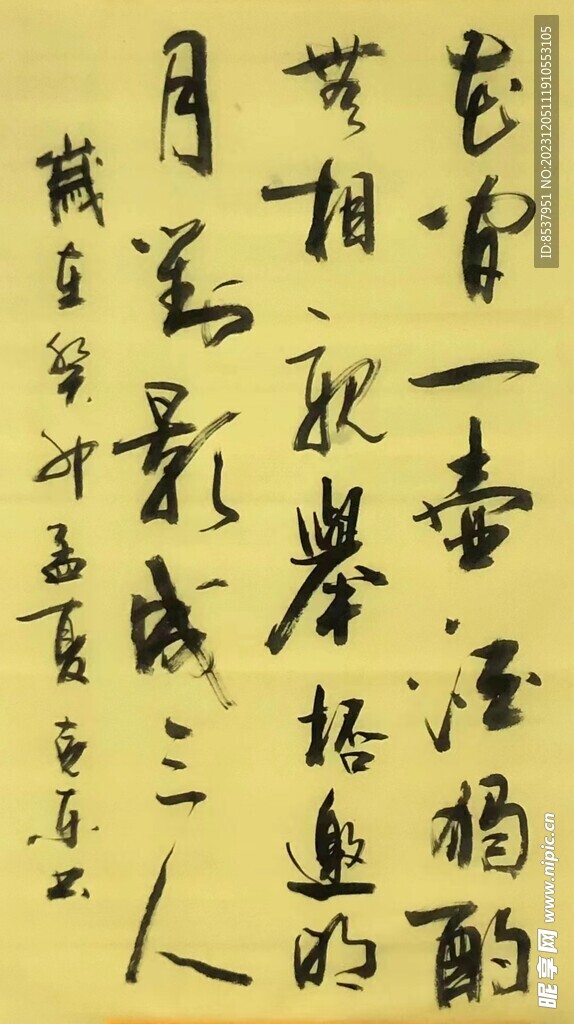 花間一壺酒獨酌
無相親舉杯邀明
月對影成三人
歲在癸卯孟夏克東書
ID:8537951 NO:20231205111910553105
昵享网 www.nipic.cn